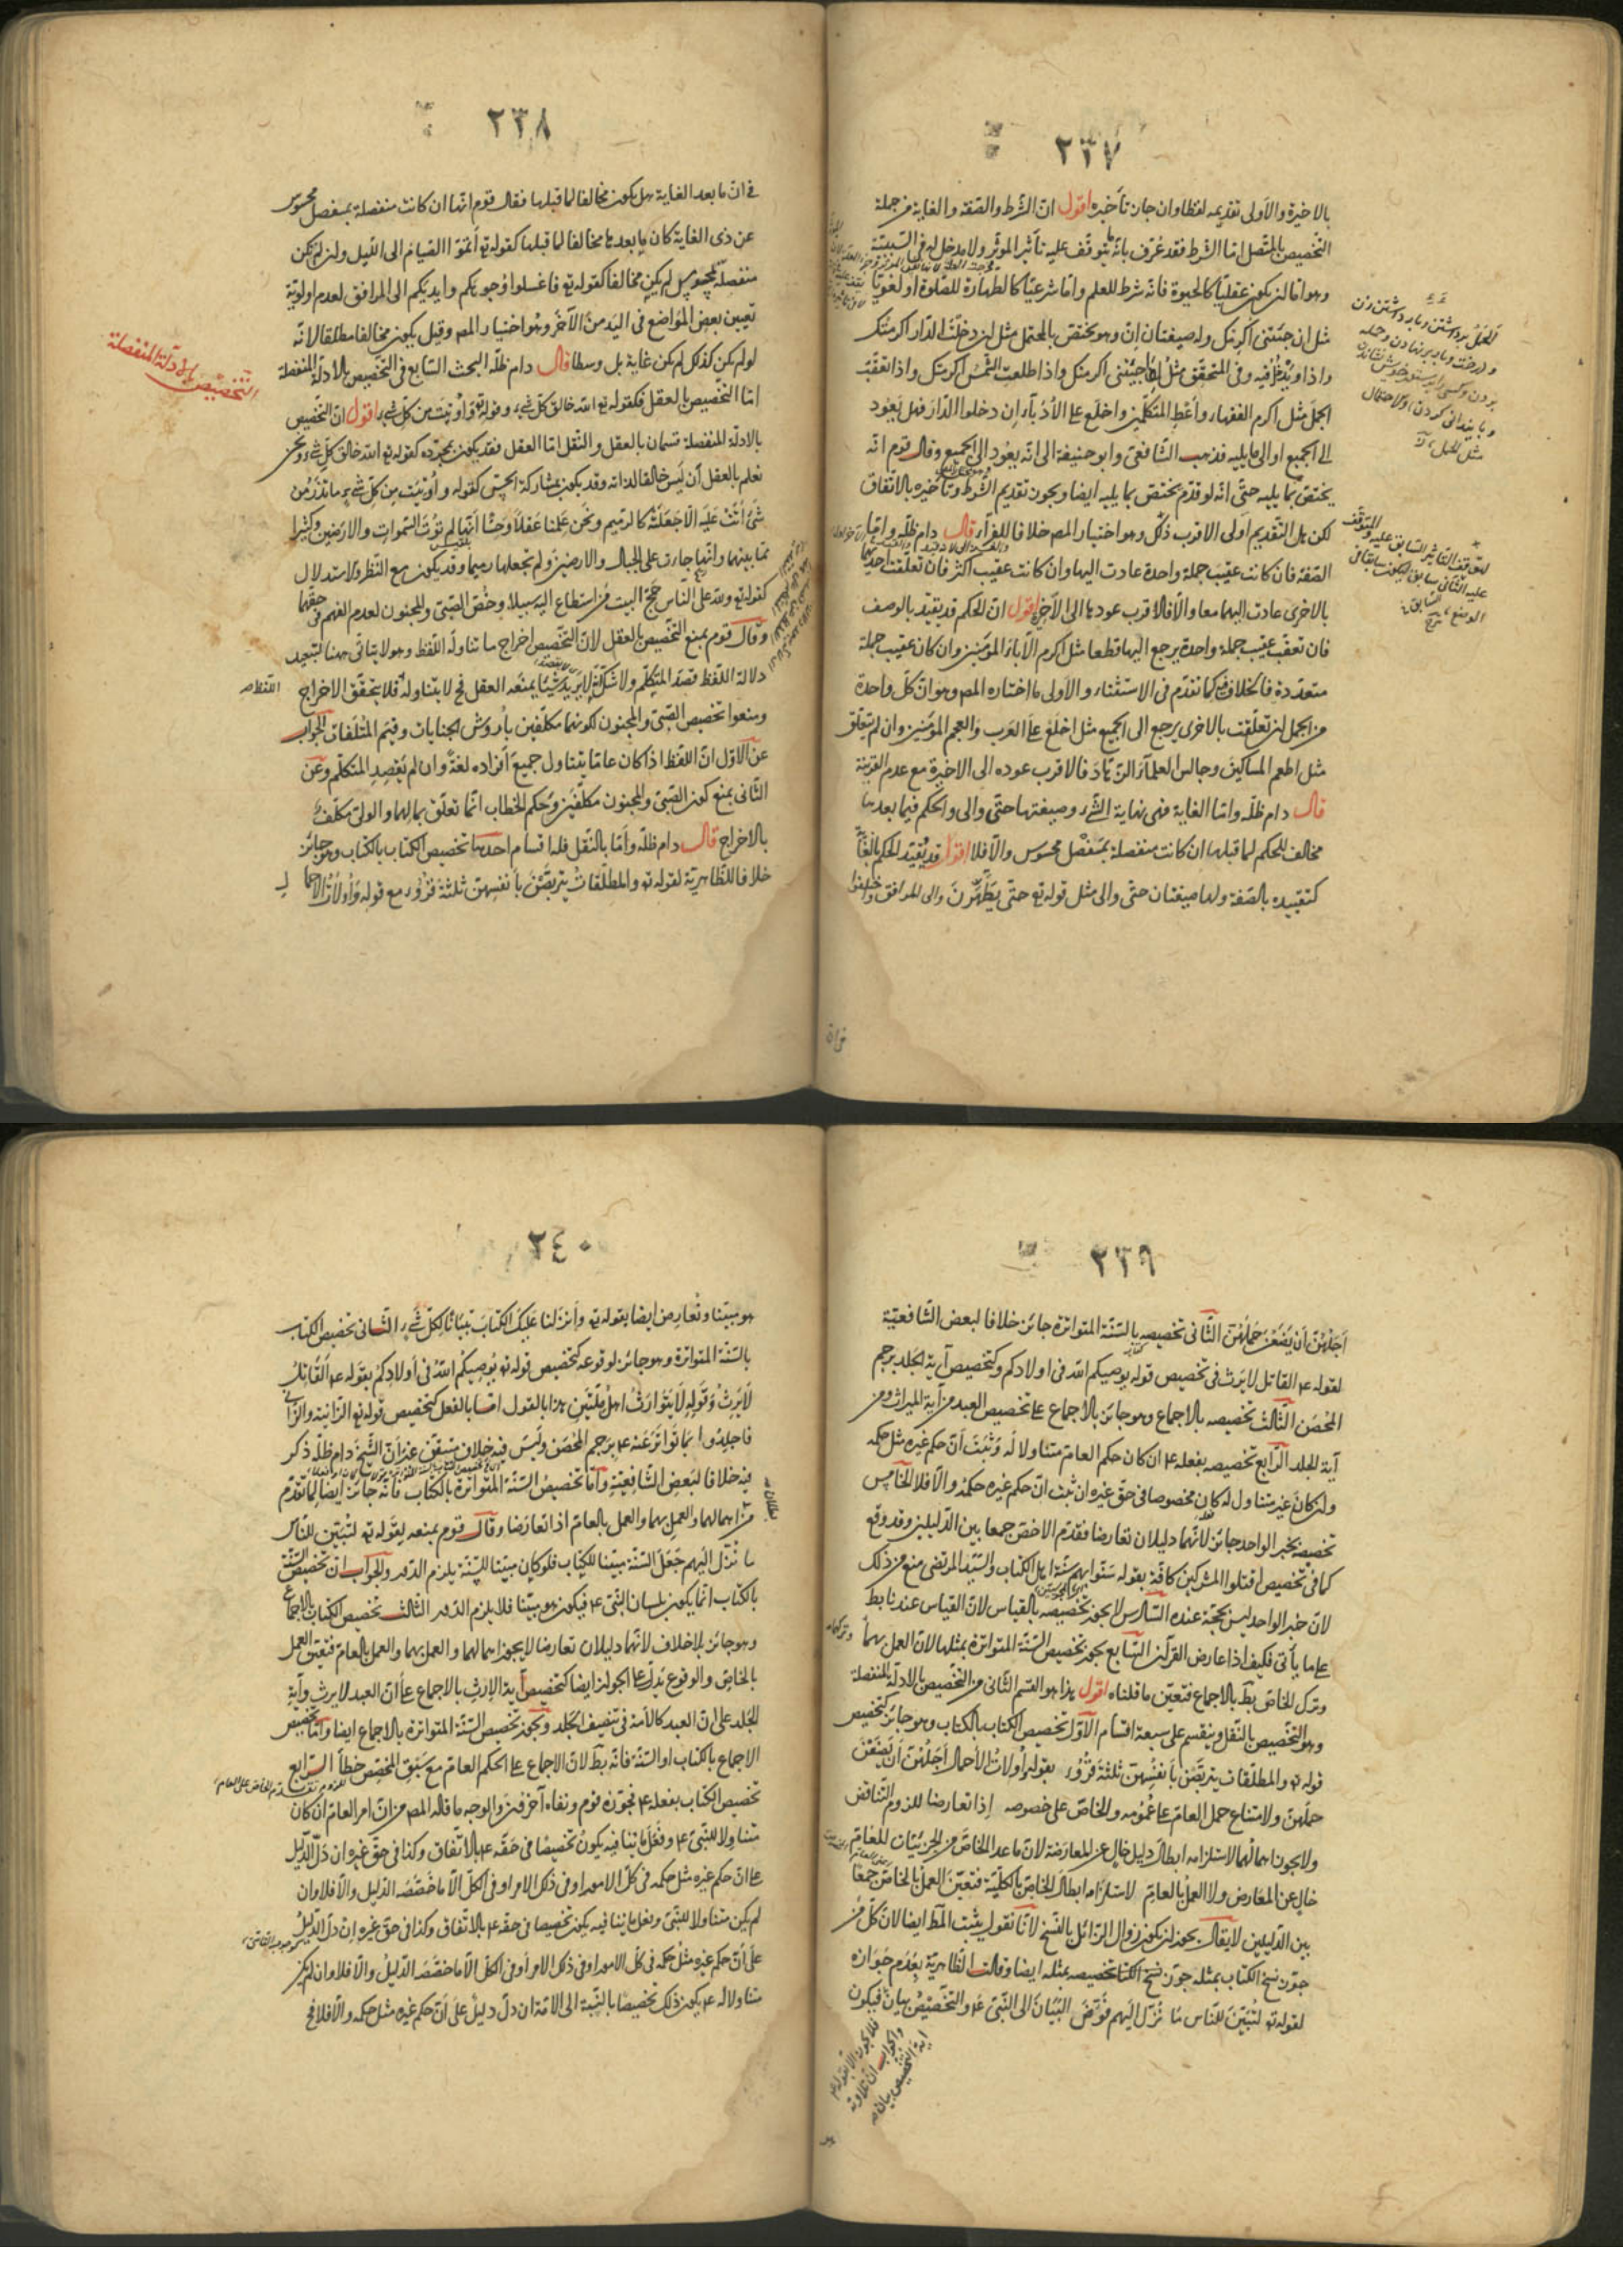 ٢٣٧
بالاخيرة والاولى تقديمه لفظا وان جاز تأخيره اقول ان الشرط والصفة والغاية من جملة
التخصيص بالمتصل اما الشرط فقد عرف بانه ما يتوقف عليه تأثير المؤثر ولا مدخل له في السببية
وهو اما ان يكون عقليا كالحيوة فانه شرط للعلم واما شرعيا كالطهارة للصلوة او لغويا
مثل ان جئتنى اكرمتك وله صيغتان إن وهو يختص بالمحتمل مثل ان دخلت الدار اكرمتك
واذا ويدخل فيه وفى المتحقق مثل اذا جئتنى اكرمتك واذا طلعت الشمس اكرمتك واذا تعقب
الجمل مثل اكرم الفقهاء وأعط المتكلمين واخلع على الأدباء إن دخلوا الدار فهل يعود
الى الجميع او الى ما يليه فذهب الشافعى وابو حنيفة الى انه يعود الى الجميع وقال قوم انه
يختص بما يليه حتى انه لو قدم يختص بما يليه ايضا ويجوز تقديم الشرط وتأخيره بالاتفاق
لكن هل التقديم اولى الاقرب ذلك وهو اختيار المص خلافا للفراء قال دام ظله واما
الصفة فان كانت عقيب جملة واحدة عادت اليها وان كانت عقيب اكثر فان تعلقت احديهما
بالاخرى عادت اليهما معا والا فالاقرب عودها الى الاخيرة اقول ان الحكم قد يقيد بالوصف
فان تعقب عقيب جملة واحدة يرجع اليها قطعا مثل اكرم الآباء المؤمنين وان كان عقيب جملة
متعددة فالخلاف فيه كما تقدم فى الاستثناء والاولى ما اختاره المص وهو ان كل واحدة
من الجمل ان تعلقت بالاخرى يرجع الى الجميع مثل اخلع على العرب والعجم المؤمنين وان لم تتعلق
مثل اطعم المساكين وجالس العلماء الزهاد فالاقرب عوده الى الاخيرة مع عدم القرينة
قال دام ظله واما الغاية فهى نهاية الشىء وصيغتها حتى والى والحكم فيما بعدها
مخالف للحكم لما قبلها ان كانت منفصلة بمنفصل محسوس والا فلا اقول قد يقيد الحكم بالغاية
كتقييده بالصفة ولها صيغتان حتى والى مثل قوله تع حتى يطهرن والى المرافق واختلفوا
٢٣٨
فى ان ما بعد الغاية هل يكون مخالفا لما قبلها فقال قوم انها ان كانت منفصلة بمنفصل محسوس
عن ذى الغاية كان ما بعدها مخالفا لما قبلها كقوله تع أتموا الصيام الى الليل وان لم تكن
منفصلة بمحسوس لم يكن مخالفا كقوله تع فاغسلوا وجوهكم وايديكم الى المرافق لعدم اولوية
تعيين بعض المواضع فى اليد من الآخر وهو اختيار المص وقيل يكون مخالفا مطلقا لانه
لو لم يكن كذلك لم يكن غاية بل وسطا قال دام ظله البحث السابع فى التخصيص بالادلة المنفصلة
اما التخصيص بالعقل فكقوله تع الله خالق كل شىء وقوله تع وأوتيت من كل شىء اقول ان التخصيص
بالادلة المنفصلة قسمان بالعقل والنقل اما العقل فقد يكون بمجرده كقوله تع الله خالق كل شىء ونحن
نعلم بالعقل أن ليس خالقا لذاته وقد يكون بمشاركة الحس كقوله وأوتيت من كل شىء ما تذر من
شىء أتت عليه الا جعلته كالرميم ونحن علمنا عقلا وحسا انها لم تؤت السموات والارضين وكثيرا
مما بينهما وانها جاءت على الجبال والارضين ولم تجعلها رميما وقد يكون مع النظر والاستدلال
كقوله تع ولله على الناس حج البيت من استطاع اليه سبيلا وخص الصبى والمجنون لعدم الفهم فى حقهما
وقال قوم بمنع التخصيص بالعقل لان التخصيص اخراج ما تناوله اللفظ وهو لا يتأتى ههنا لتبعيد
دلالة اللفظ قصد المتكلم ولا شك انه لا يريد شيئا يمنعه العقل فح لا يتناوله فلا يتحقق الاخراج
ومنعوا تخصيص الصبى والمجنون لكونهما مكلفين بأروش الجنايات وقيم المتلفات والجواب
عن الاول ان اللفظ اذا كان عاما يتناول جميع أفراده لغة وان لم يقصد المتكلم وعن
الثانى بمنع كون الصبى والمجنون مكلفين وحكم الخطاب انما تعلق بمالهما والولى مكلف
بالاخراج قال دام ظله وأما بالنقل فله اقسام احدها تخصيص الكتاب بالكتاب وهو جائز
خلافا للظاهرية لقوله تع والمطلقات يتربصن بأنفسهن ثلثة قروء مع قوله وأولات الاحمال
التخصيص بالادلة المنفصلة
٢٣٩
أجلهن أن يضعن حملهن الثانى تخصيصه بالسنة المتواترة جائز خلافا لبعض الشافعية
لقوله ع القاتل لا يرث فى تخصيص قوله يوصيكم الله فى اولادكم وكتخصيص آية الجلد برجم
المحصن الثالث تخصيصه بالاجماع وهو جائز بالاجماع على تخصيص العبد من آية الميراث ومن
آية الجلد الرابع تخصيصه بفعله ع ان كان حكم العام متناولا له وثبت أن حكم غيره مثل حكمه
وان كان غير متناول له كان مخصوصا فى حق غيره ان ثبت ان حكم غيره حكمه والا فلا الخامس
تخصيصه بخبر الواحد جائز لانهما دليلان تعارضا فقدم الاخص جمعا بين الدليلين وقد وقع
كما فى تخصيص اقتلوا المشركين كافة بقوله سنوا بهم سنة اهل الكتاب والسيد المرتضى منع من ذلك
لان خبر الواحد ليس بحجة عنده السادس لا يجوز تخصيصه بالقياس لان القياس عندنا بط
على ما يأتى فكيف اذا عارض القرآن السابع يجوز تخصيص السنة المتواترة بمثلها لان العمل بهما
وترك الخاص بط بالاجماع فتعين ما قلناه اقول هذا هو القسم الثانى من التخصيص بالادلة المنفصلة
وهو التخصيص بالنقل وينقسم على سبعة اقسام الاول تخصيص الكتاب بالكتاب وهو جائز كتخصيص
قوله تع والمطلقات يتربصن بأنفسهن ثلثة قروء بقوله وأولات الأحمال أجلهن أن يضعن
حملهن ولامتناع حمل العام على عمومه والخاص على خصوصه إذا تعارضا للزوم التناقض
ولا يجوز اهمالهما لاستلزامه ابطال دليل خال عن المعارضة لان ما عدا الخاص من الجزئيات للعام
خال عن المعارض ولا العمل بالعام لاستلزامه ابطال الخاص بالكلية فتعين العمل بالخاص جمعا
بين الدليلين لا يقال يجوز ان يكون زوال الزائل بالنسخ لانا نقول يثبت المط ايضا لان كل من
جوز نسخ الكتاب بمثله جوز تخصيصه بمثله ايضا وقالت الظاهرية بعدم جوازه
لقوله تع لتبين للناس ما نزل اليهم فوض البيان الى النبى ع والتخصيص بيان فيكون
٢٤٠
هو مبينا وتعارض ايضا بقوله تع وأنزلنا عليك الكتاب تبيانا لكل شىء الثانى تخصيص الكتاب
بالسنة المتواترة وهو جائز لوقوعه كتخصيص قوله تع يوصيكم الله فى أولادكم بقوله ع القاتل
لا يرث وقوله لا يتوارث اهل ملتين هذا بالقول اما بالفعل كتخصيص قوله تع الزانية والزانى
فاجلدوا بما تواتر عنه ع برجم المحصن وليس فيه خلاف متيقن غير أن الشيخ دام ظله ذكر
فيه خلافا لبعض الشافعية وأما تخصيص السنة المتواترة بالكتاب فانه جائز ايضا لما تقدم
من اهمالهما والعمل بهما والعمل بالعام اذا تعارضا وقال قوم بمنعه لقوله تع لتبين للناس
ما نزل اليهم جعل السنة مبينا للكتاب فلو كان مبينا للسنة يلزم الدور والجواب ان تخصيص السنة
بالكتاب انما يكون بلسان النبى ع فيكون هو مبينا فلا يلزم الدور الثالث تخصيص الكتاب بالاجماع
وهو جائز بلا خلاف لانهما دليلان تعارضا لا يجوز اهمالهما والعمل بهما والعمل بالعام فتعين العمل
بالخاص والوقوع يدل على الجواز ايضا كتخصيص آية الإرث بالاجماع على أن العبد لا يرث وآية
الجلد على ان العبد كالأمة فى تنصيف الجلد ويجوز تخصيص السنة المتواترة بالاجماع ايضا واما تخصيص
الاجماع بالكتاب او السنة فانه بط لان الاجماع على الحكم العام مع سبق المخصص خطأ الرابع
تخصيص الكتاب بفعله ع فجوزه قوم ونفاه آخرون والوجه ما قاله المص من ان امر العام ان كان
متناولا للنبى ع وفعل ما ينافيه يكون تخصيصا فى حقه ع بالاتفاق وكذا فى حق غيره ان دل الدليل
على ان حكم غيره مثل حكمه فى كل الامور او فى ذلك الامر او فى الكل الا ما خصصه الدليل والا فلا وان
لم يكن متناولا للنبى وفعل ما ينافيه يكون تخصيصا فى حقه ع بالاتفاق وكذا فى حق غيره إن دل الدليل
على أن حكم غيره مثل حكمه فى كل الامور او فى ذلك الامر أو فى الكل الا ما خصصه الدليل والا فلا وان لم يكن
متناولا له ع يكون ذلك تخصيصا بالنسبة الى الامة ان دل دليل على أن حكم غيره مثل حكمه والا فلا فح